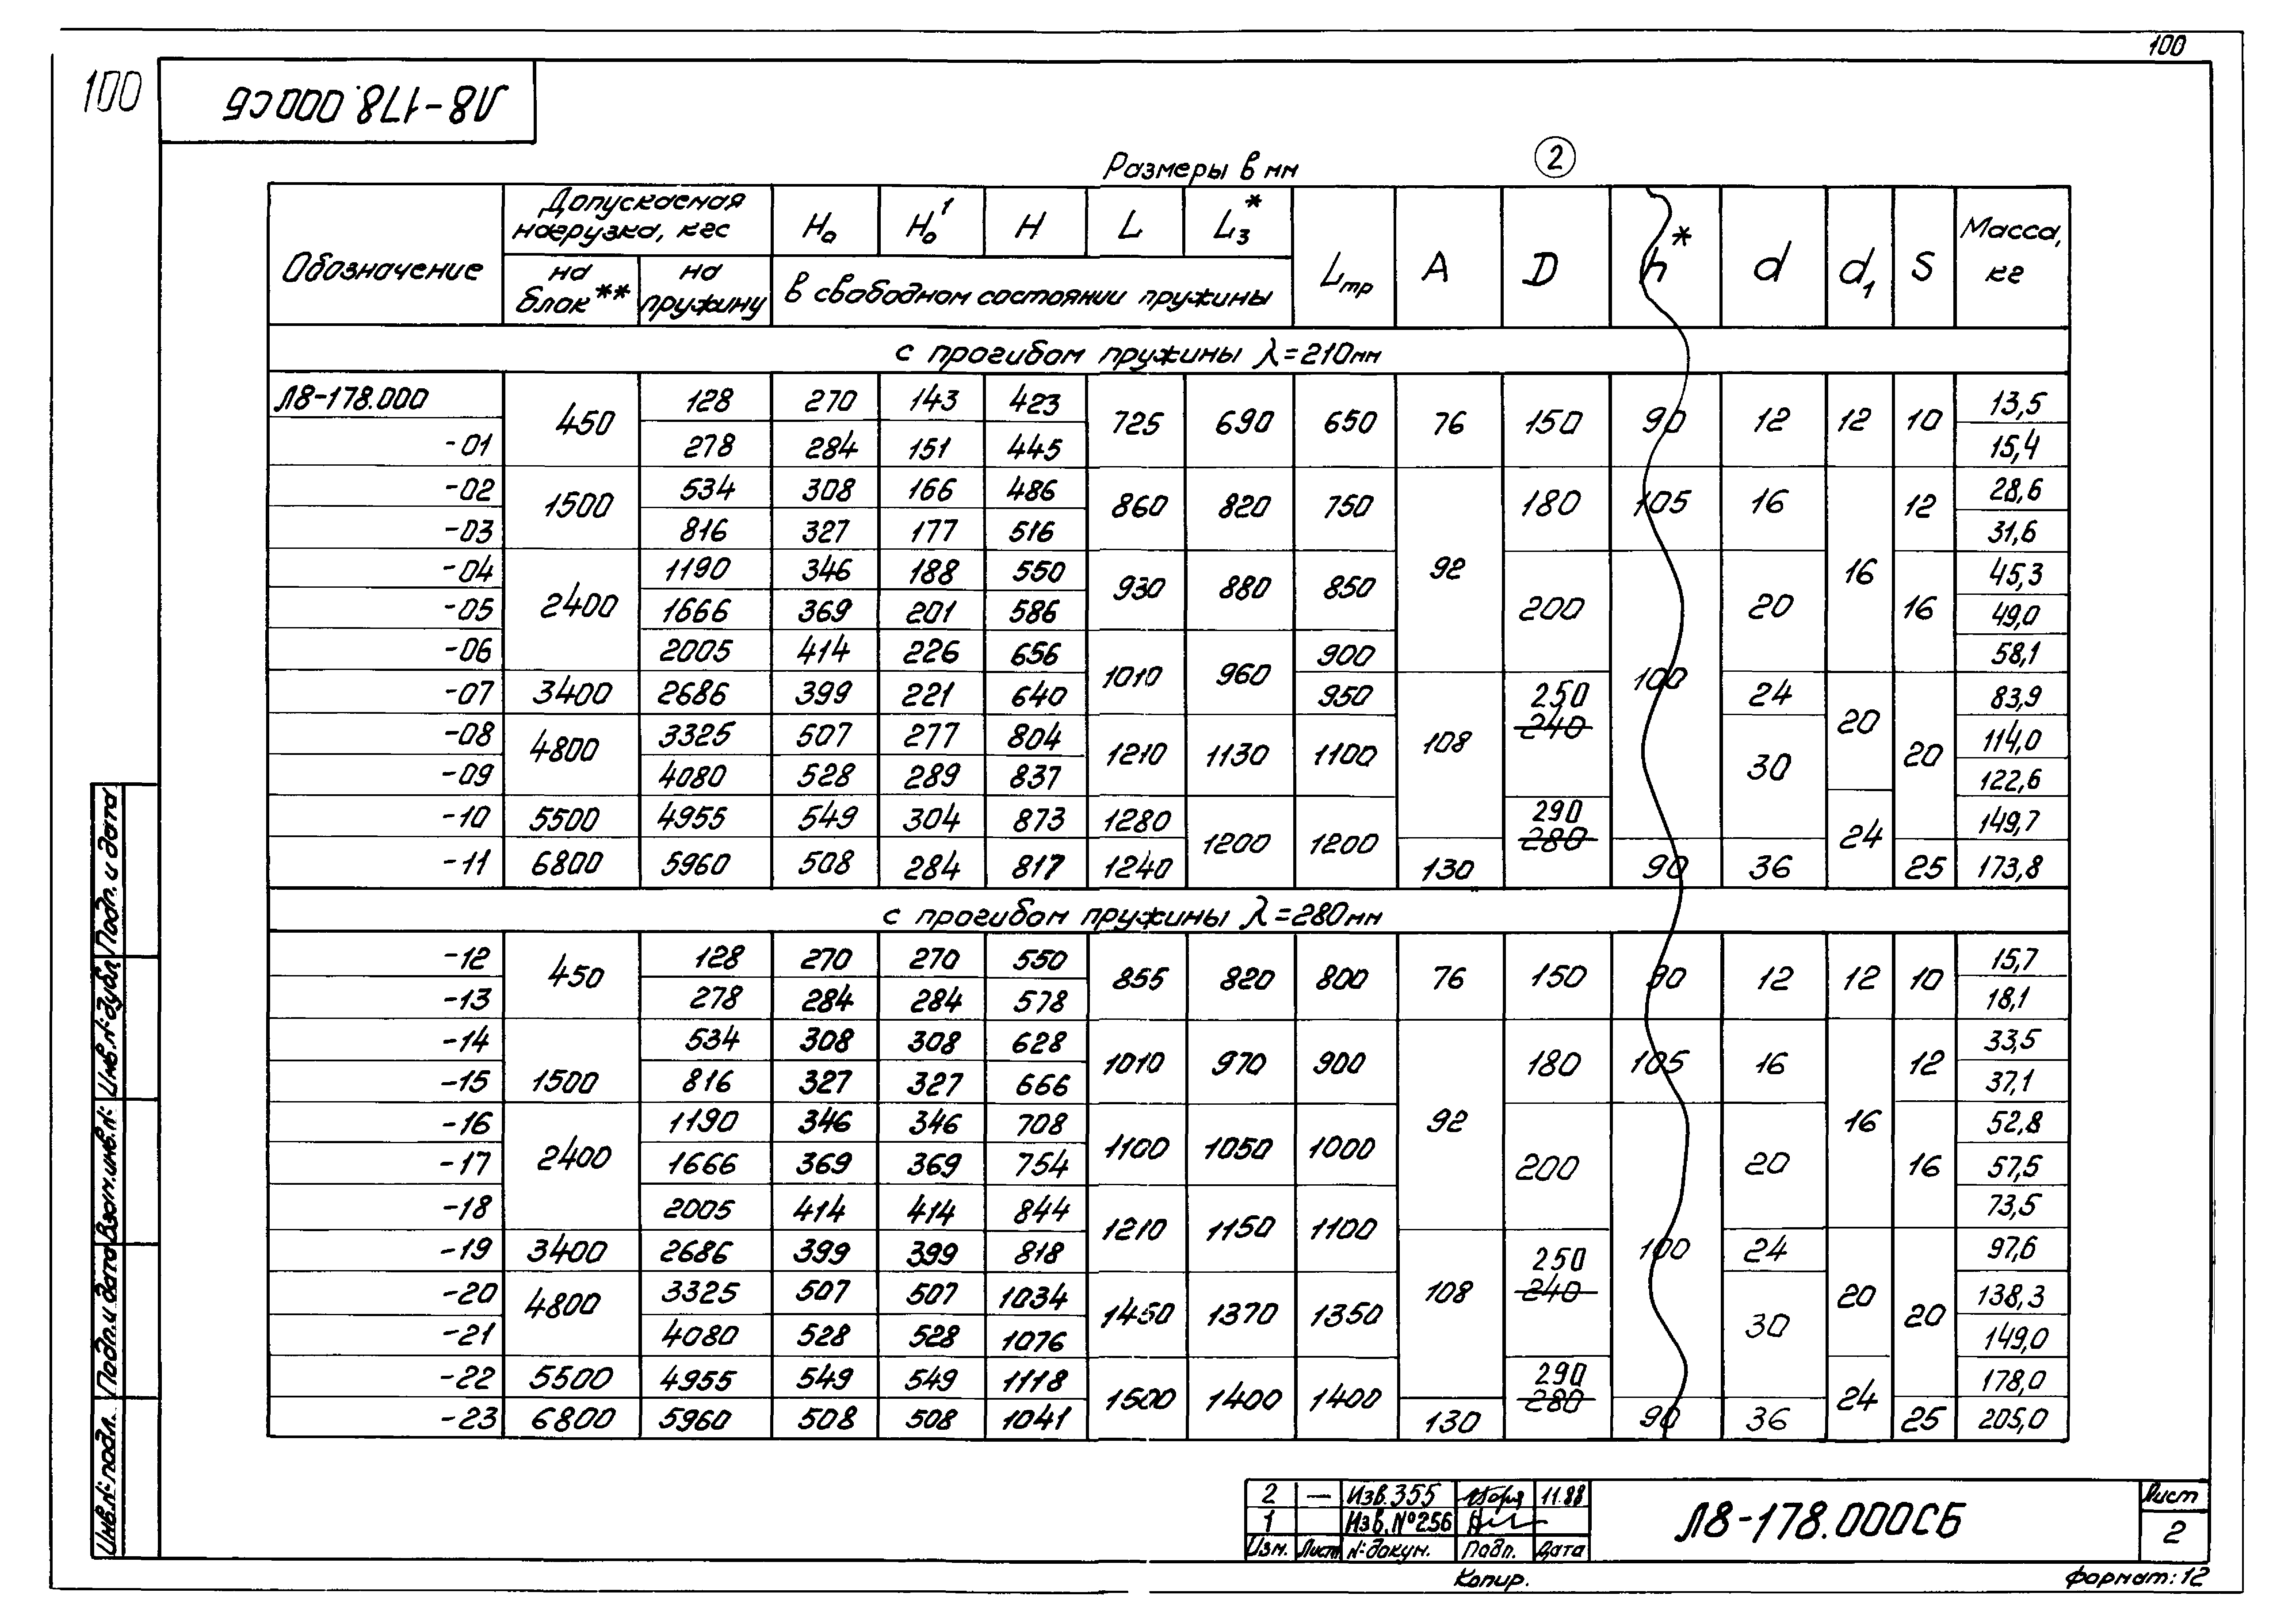 100
100
Л8-178.000СБ
Размеры в мм
2
Обозначение
Допускаемая нагрузка, кгс
на блок**
на пружину
H₀ H₀¹ H L L₃*
в свободном состоянии пружины
Lтр A D h* d d₁ S Масса, кг
с прогибом пружины λ=210мм
Л8-178.000 450 128 270 143 423 725 690 650 76 150 90 12 12 10 13,5
-01 278 284 151 445 15,4
-02 1500 534 308 166 486 860 820 750 92 180 105 16 16 12 28,6
-03 816 327 177 516 31,6
-04 2400 1190 346 188 550 930 880 850 200 100 20 16 45,3
-05 1666 369 201 586 49,0
-06 2005 414 226 656 1010 960 900 58,1
-07 3400 2686 399 221 640 950 108 250 240 24 20 20 83,9
-08 4800 3325 507 277 804 1210 1130 1100 30 114,0
-09 4080 528 289 837 122,6
-10 5500 4955 549 304 873 1280 1200 1200 290 280 24 149,7
-11 6800 5960 508 284 817 1240 130 90 36 25 173,8
с прогибом пружины λ=280мм
-12 450 128 270 270 550 855 820 800 76 150 90 12 12 10 15,7
-13 278 284 284 578 18,1
-14 1500 534 308 308 628 1010 970 900 92 180 105 16 16 12 33,5
-15 816 327 327 666 37,1
-16 2400 1190 346 346 708 1100 1050 1000 200 100 20 16 52,8
-17 1666 369 369 754 57,5
-18 2005 414 414 844 1210 1150 1100 73,5
-19 3400 2686 399 399 818 108 250 240 24 20 20 97,6
-20 4800 3325 507 507 1034 1450 1370 1350 30 138,3
-21 4080 528 528 1076 149,0
-22 5500 4955 549 549 1118 1500 1400 1400 290 280 24 178,0
-23 6800 5960 508 508 1041 130 90 36 25 205,0
Инв.№ подл. Подп. и дата Взам.инв.№ Инв.№ дубл. Подп. и дата
2 — Изв.355 11.88
1 Изв.№256
Изм. Лист № докум. Подп. Дата
Л8-178.000СБ
Лист
2
Копир.
формат: 12